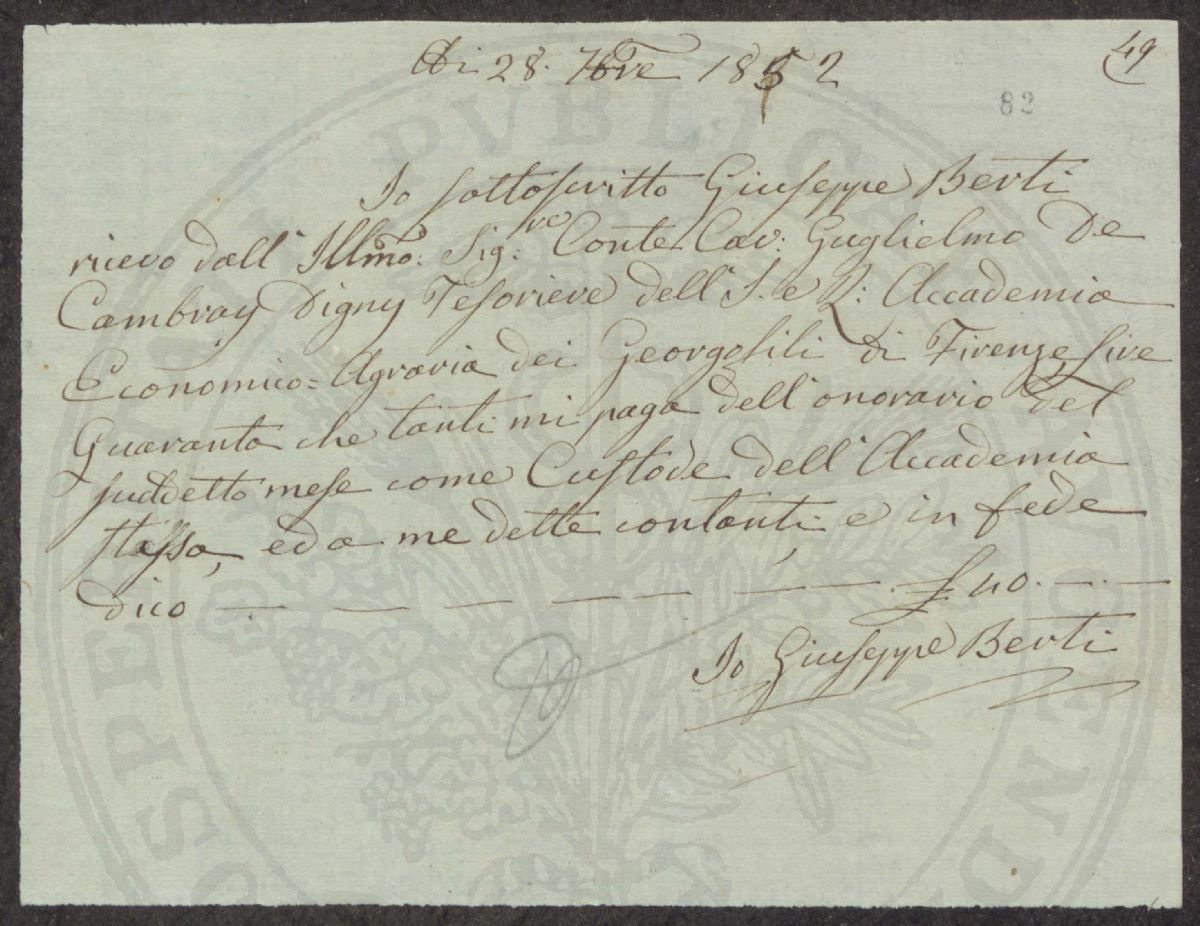 Adi 28. 7bre 1852
49
82
Io sottoscritto Giuseppe Berti
ricevo dall' Illmo: Sig:re Conte Cav: Guglielmo De
Cambray Digny Tesoriere dell' I. e R: Accademia
Economico=Agraria dei Georgofili di Firenze, Lire
Quaranta che tanti mi paga dell' onorario del
suddetto mese come Custode dell' Accademia
stessa, ed a me dette contanti, e in fede
dico — — — — — — — £ 40. — —
Io Giuseppe Berti
PROSPERITATI PVBLICAE PROVEHENDAE